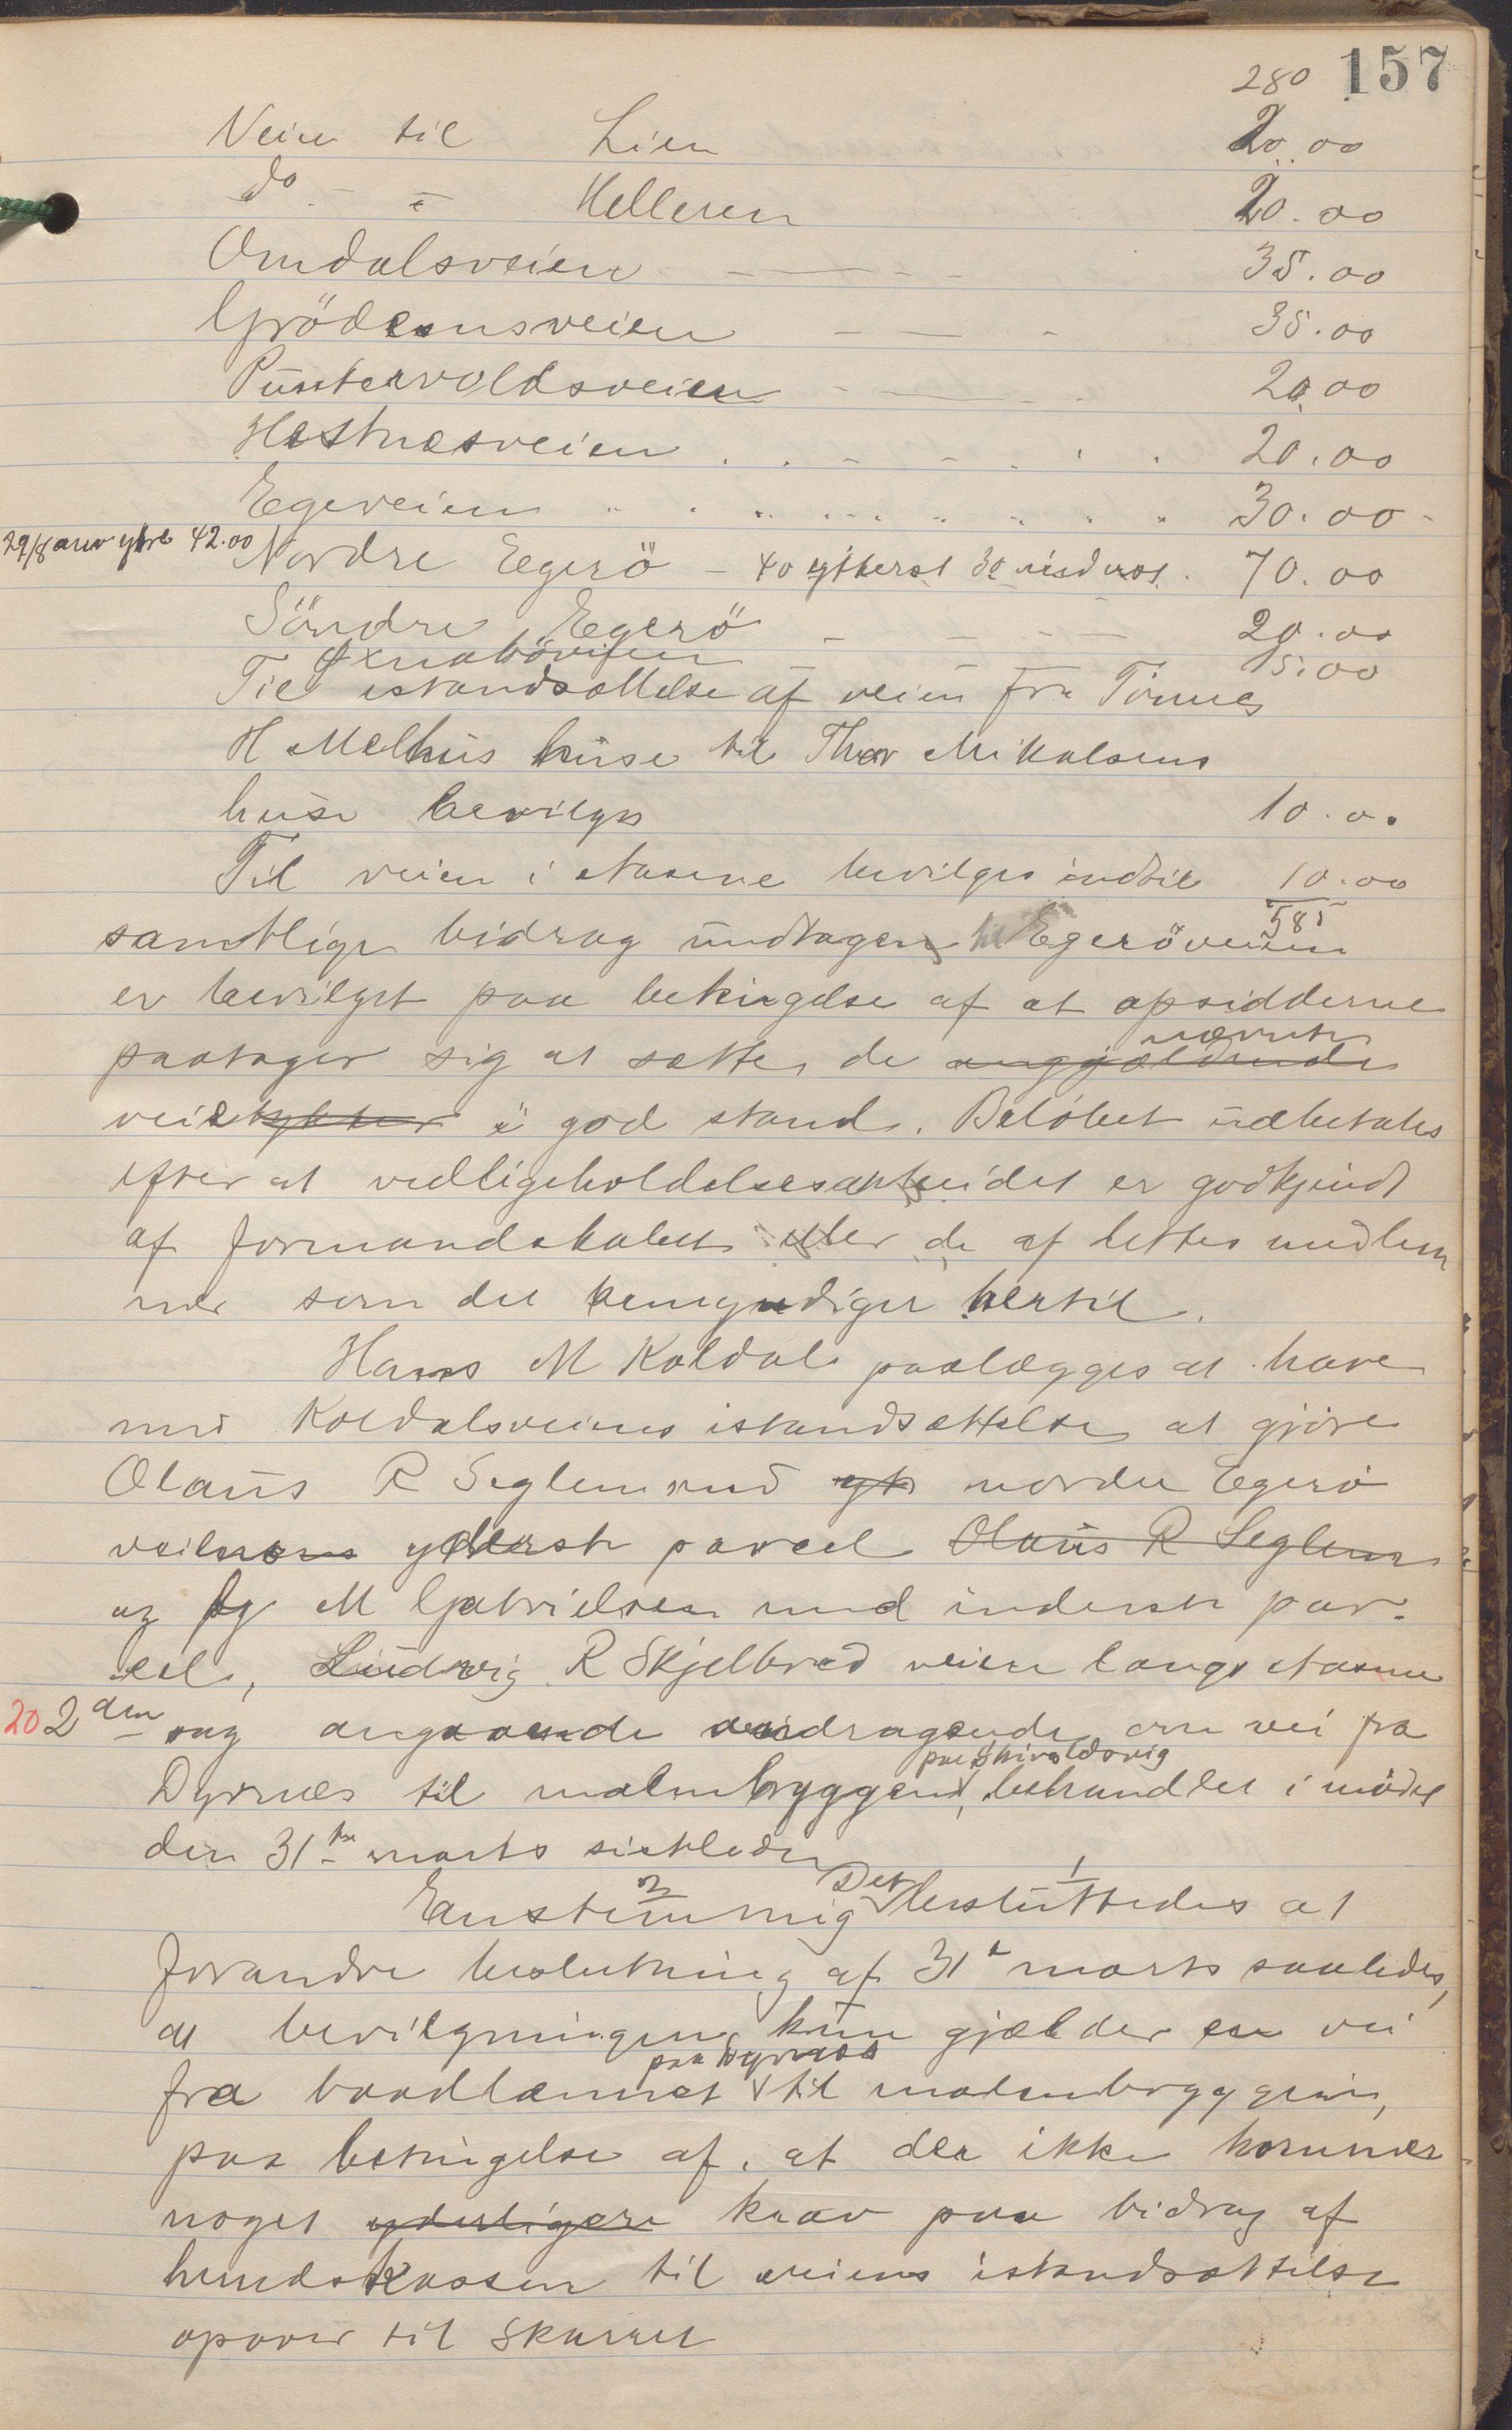 280 157
Veien til Lien 20.00
do - " - Helleren 20.00
Omdalsveien 35.00
Grödemsveien 35.00
Puntervoldsveien 20.00
Hestnesveien 20.00
Egeveien 30.00
29/8 anv ytre 42.00 Nordre Egerö - 40 ytterst 30 inderst. 70.00
Söndre Egerö 20.00
Oxnabövejen 15.00
Til istandsættelse af veien fra Tönnes
H Melhus huse til Thor Mikalsens
huse bevilges 10.00
Til veien i Nasene bevilges indtil 10.00
585
samtlige bidrag undtagen til Egeröveien
er bevilget paa betingelse af at opsidderne
nævnte
paatager sig at sætte de anggjældende
veistykker i god stand. Beløbet udbetales
efter at vedligeholdelsesarbeidet er godkjendt
af formandskabet eller de af dettes medlem
mer som det bemyndiger hertil.
Hans M Koldal paalægges at have
med Koldalsveiens istandsættelse at gjöre
Olaus R Seglem med yt nordre Egerö
veiens yderste parcel Olaus R Seglem
og M Gabrielsen med inderste par-
cel, Ludvig R Skjelbred veien langs Nasene
20 2den sag angaaende andragende om vei fra
paa Skivoldsvig
Dyrnes til malmbryggen, behandlet i mödet
den 31te marts sistleden
2 Det 1
Enstemmig besluttedes at
forandre beslutning af 31te marts saaledes,
at bevilgningen kun gjælder en vei
paa Dyrnes
fra baadlænnet til malmbryggen,
paa betingelse af, at der ikke kommer
noget yderligere krav paa bidrag af
herredskassen til veiens istandsættelse
opover til Skarret